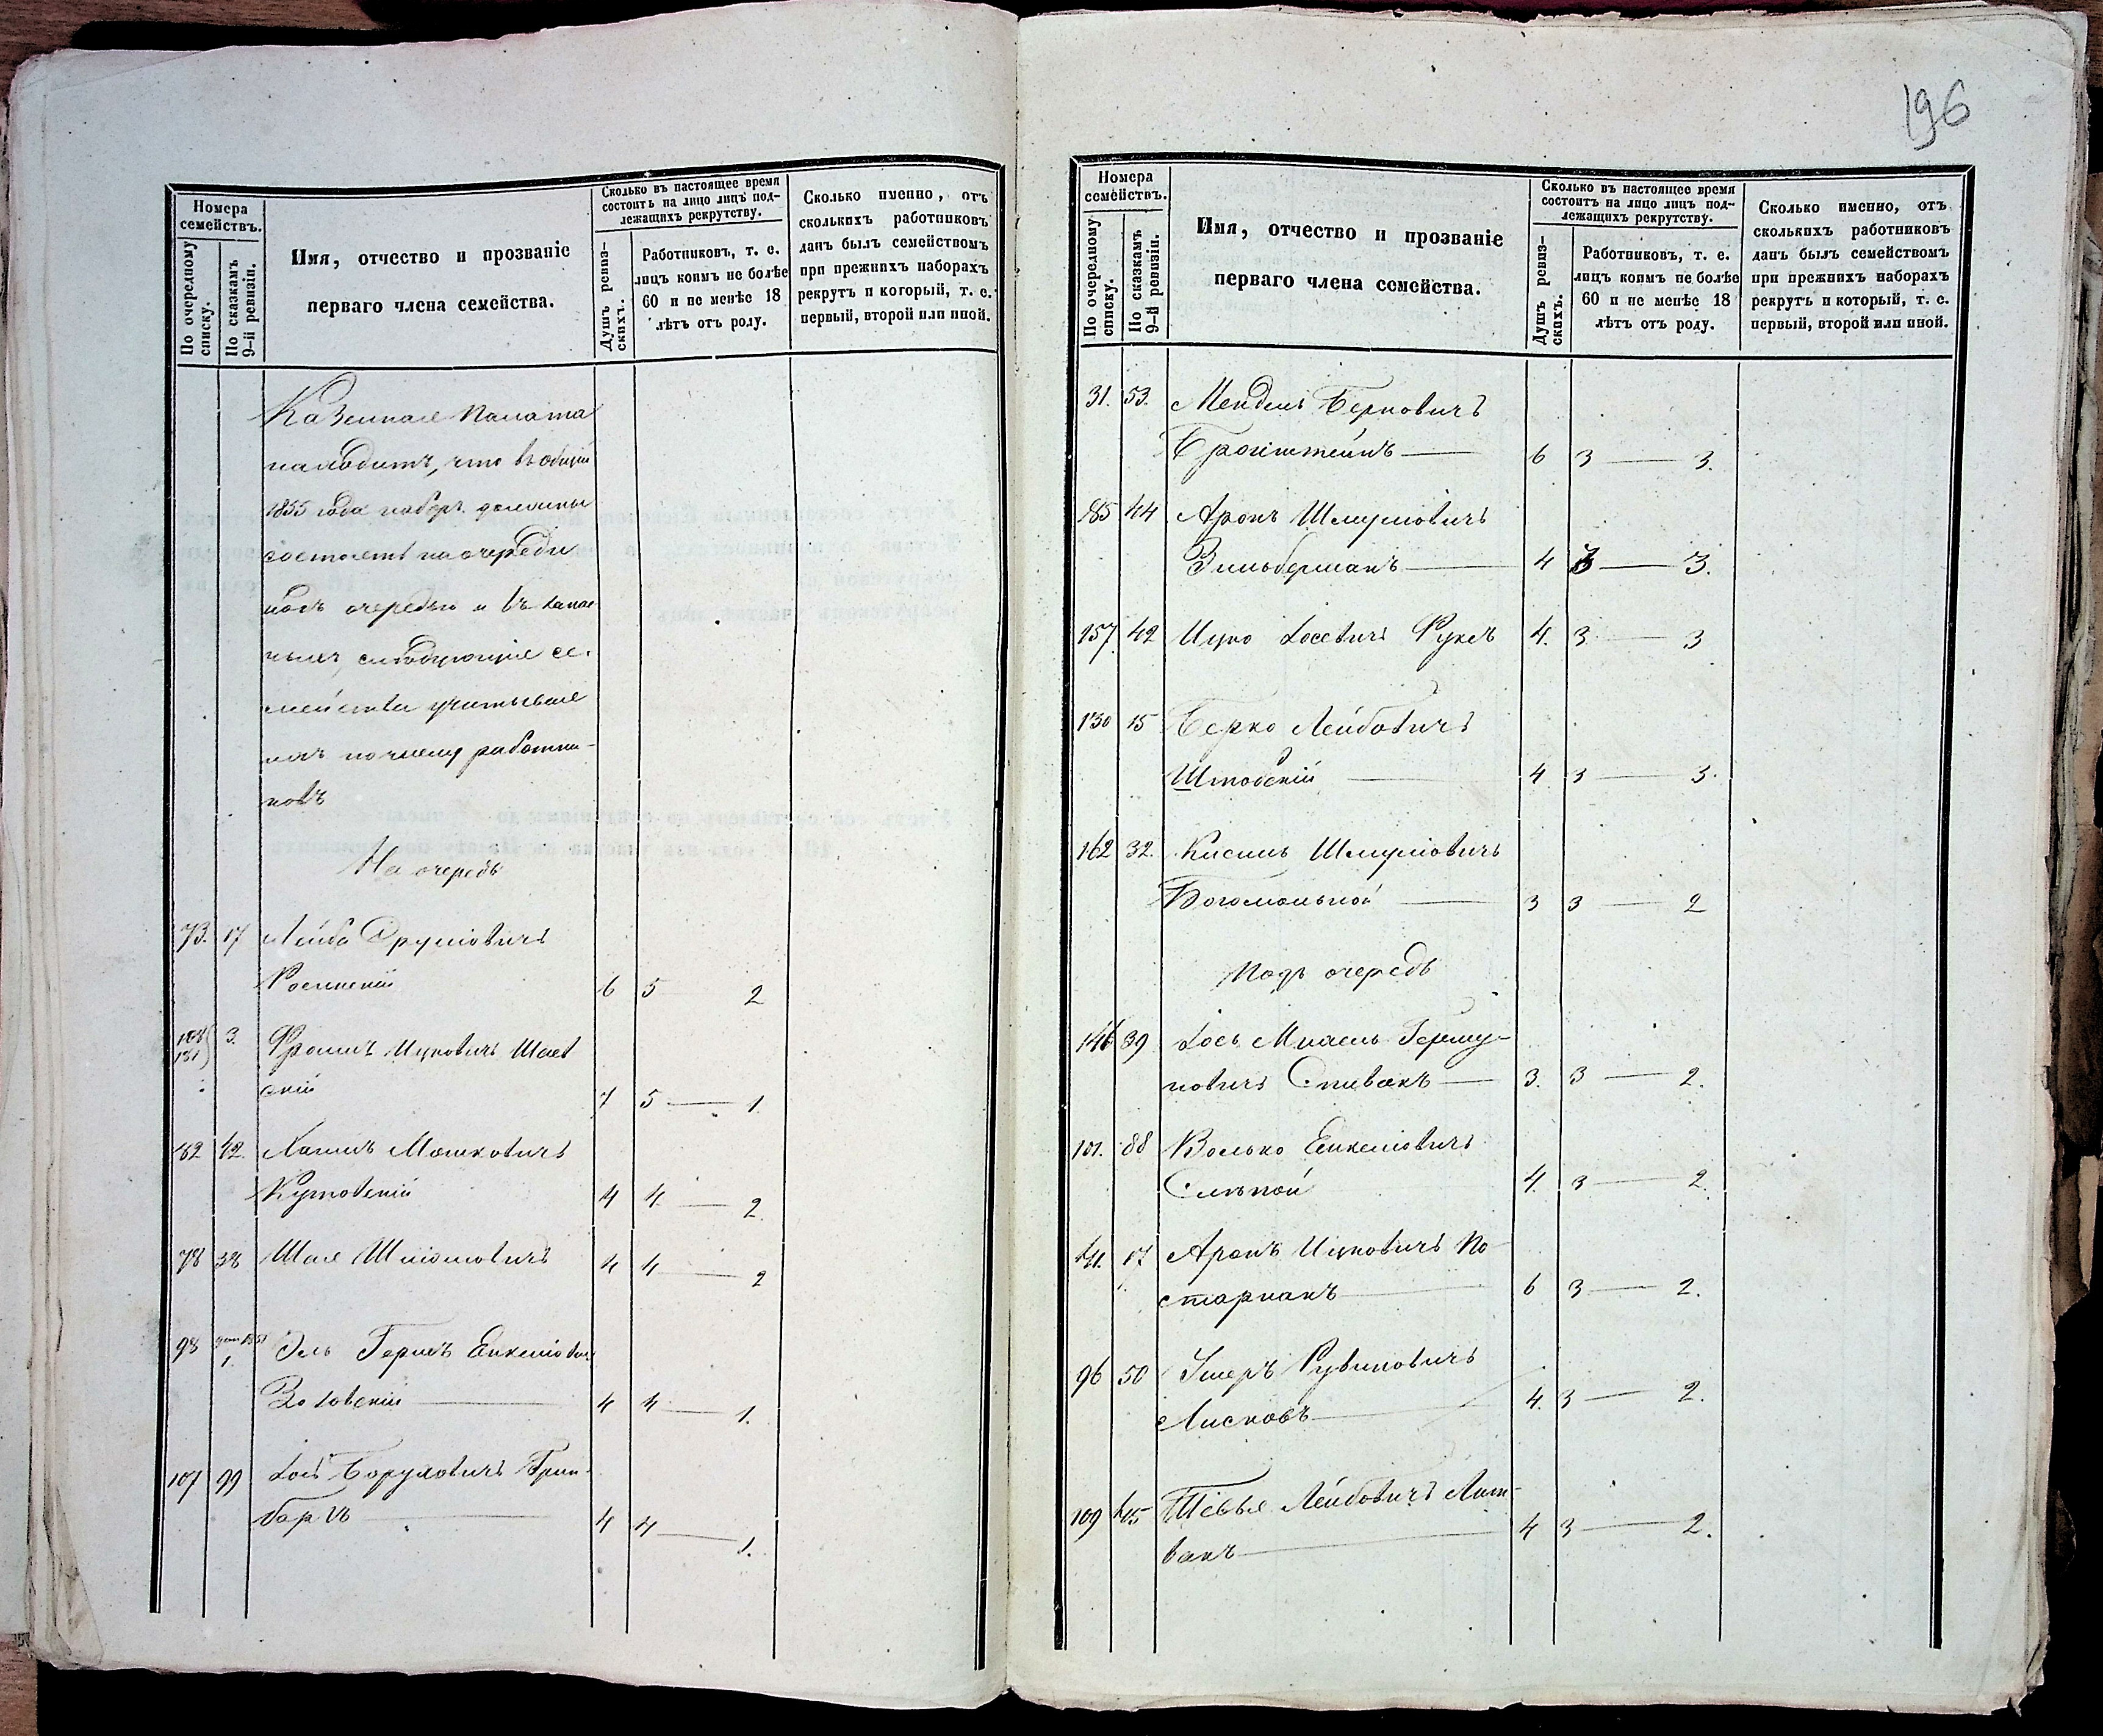 Номера
семействъ.
По очередному
списку.
По сказкамъ
9-й ревизіи.
Имя, отчество и прозваніе
перваго члена семейства.
Сколько въ настоящее время
состоитъ на лицо лицъ под-
лежащихъ рекрутству.
Душъ ревиз-
скихъ.
Работниковъ, т. е.
лицъ коимъ не болѣе
60 и не менѣе 18
лѣтъ отъ роду.
Сколько именно, отъ
сколькихъ работниковъ
данъ былъ семействомъ
при прежнихъ наборахъ
рекрутъ и который, т. е.
первый, второй или иной.
Казенная Палата
находитъ, что въ общій
1855 года наборъ должны
состоять на очереди
подъ очередью и въ запас
ныхъ, слѣдующіе се-
мейства
по числу работни-
ковъ
На очередь
73. 17 Лейба Сруліовичъ
6 5 2
3. Фроимъ Ицковичъ
скій 7 5 — 1.
62 42. Хаимъ Мошковичъ
Кутовскій 4 4 — 2.
78 38 Шая Шліомовичъ 4 4 — 2
98 1. Гершъ Енкеліович
4 4 — 1.
107 99 Іось Боруховичъ Грин-
баръ 4 4 — 1.
196
Номера
семействъ.
По очередному
списку.
По сказкамъ
9-й ревизіи.
Имя, отчество и прозваніе
перваго члена семейства.
Сколько въ настоящее время
состоитъ на лицо лицъ под-
лежащихъ рекрутству.
Душъ ревиз-
скихъ.
Работниковъ, т. е.
лицъ коимъ не болѣе
60 и не менѣе 18
лѣтъ отъ роду.
Сколько именно, отъ
сколькихъ работниковъ
данъ былъ семействомъ
при прежнихъ наборахъ
рекрутъ и который, т. е.
первый, второй или иной.
31. 53. Мендель Берковичъ
Бронштейнъ — 6 3 — 3.
85 44 Аронъ Шмуліовичъ
Зильберманъ — 4 3 — 3.
157 42 Ицко Іосевичъ Фуксъ 4. 3 — 3
130 15 Берко Лейбовичъ
4. 3 — 3.
162 32. Кисиль Шмуліовичъ
Богомольной — 3 3 — 2
Подъ очередь
146 39 Іось Михель Гершу-
новичъ Спивакъ — 3. 3 — 2.
101. 88 Волько Енкеліовичъ
Слѣпой 4. 3 — 2.
141. 17 Аронъ Ицковичъ По-
старнакъ — 6 3 — 2.
96 50 Умеръ Рувиновичъ
Лисковъ — 4. 3 — 2.
109 Лейбовичъ Лит-
вакъ — 4 3 — 2.